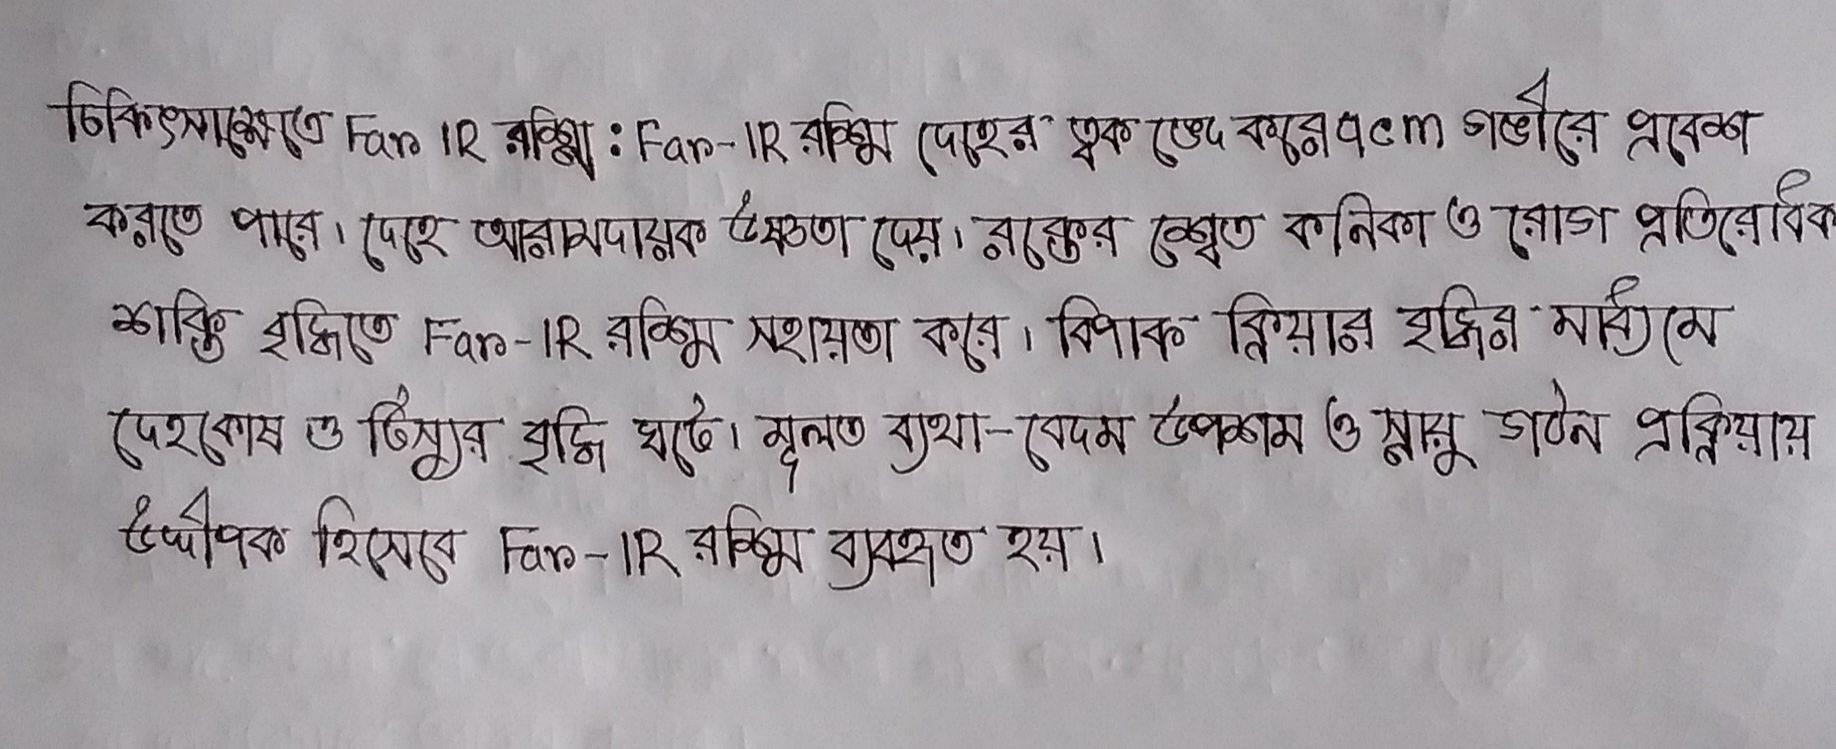 চিকিৎসাক্ষেত্রে Far IR রশ্মি : Far-IR রশ্মি দেহের ত্বক ভেদ করে ৭cm গভীরে প্রবেশ
করতে পারে। দেহে আরামদায়ক উষ্ণতা দেয়। রক্তের শ্বেত কনিকা ও রোগ প্রতিরোধক
শক্তি বৃদ্ধিতে Far-IR রশ্মি সহায়তা করে। বিপাক ক্রিয়ার বৃদ্ধির মাধ্যমে
দেহকোষ ও টিস্যুর বৃদ্ধি ঘটে। মূলত ব্যথা-বেদম উপশম ও স্নায়ু গঠন প্রক্রিয়ায়
উদ্দীপক হিসেবে Far-IR রশ্মি ব্যবহৃত হয়।